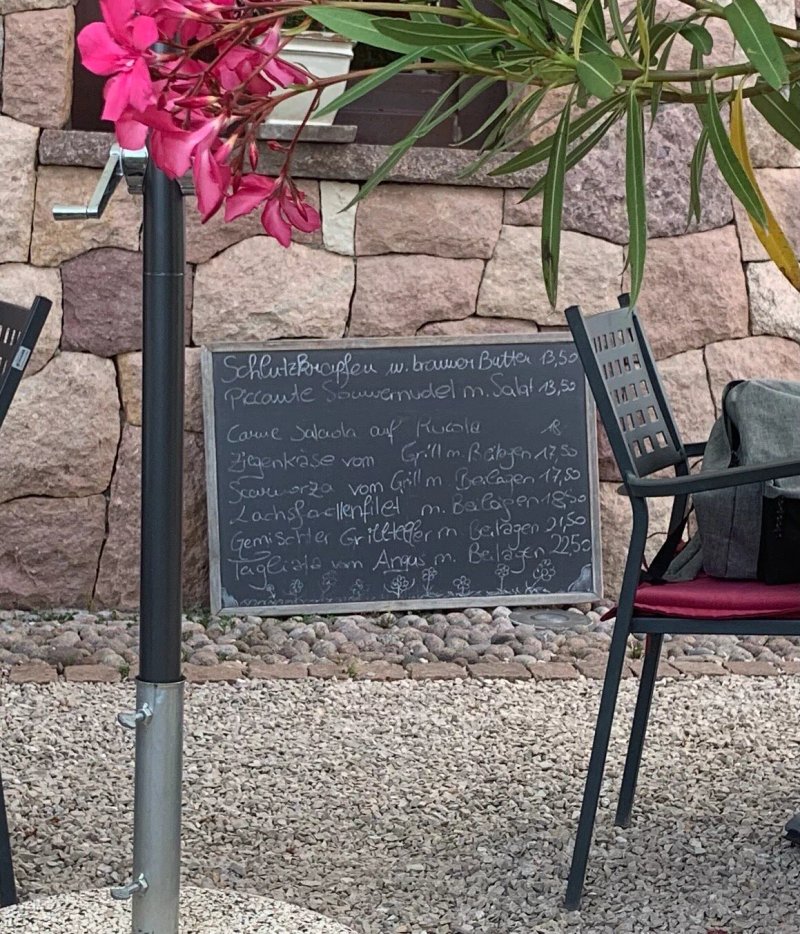 Schlutzkrapfen m. brauner Butter 13,50
Piccante m. Salat 13,50
Carne Salada auf Rucola 18
Ziegenkäse vom Grill m. Beilagen 17,50
Scamorza vom Grill m. Beilagen 17,50
Lachsforellenfilet m. Beilagen 18,50
Gemischter Grillteller m. Beilagen 21,50
Tagliata vom Angus m. Beilagen 22,50